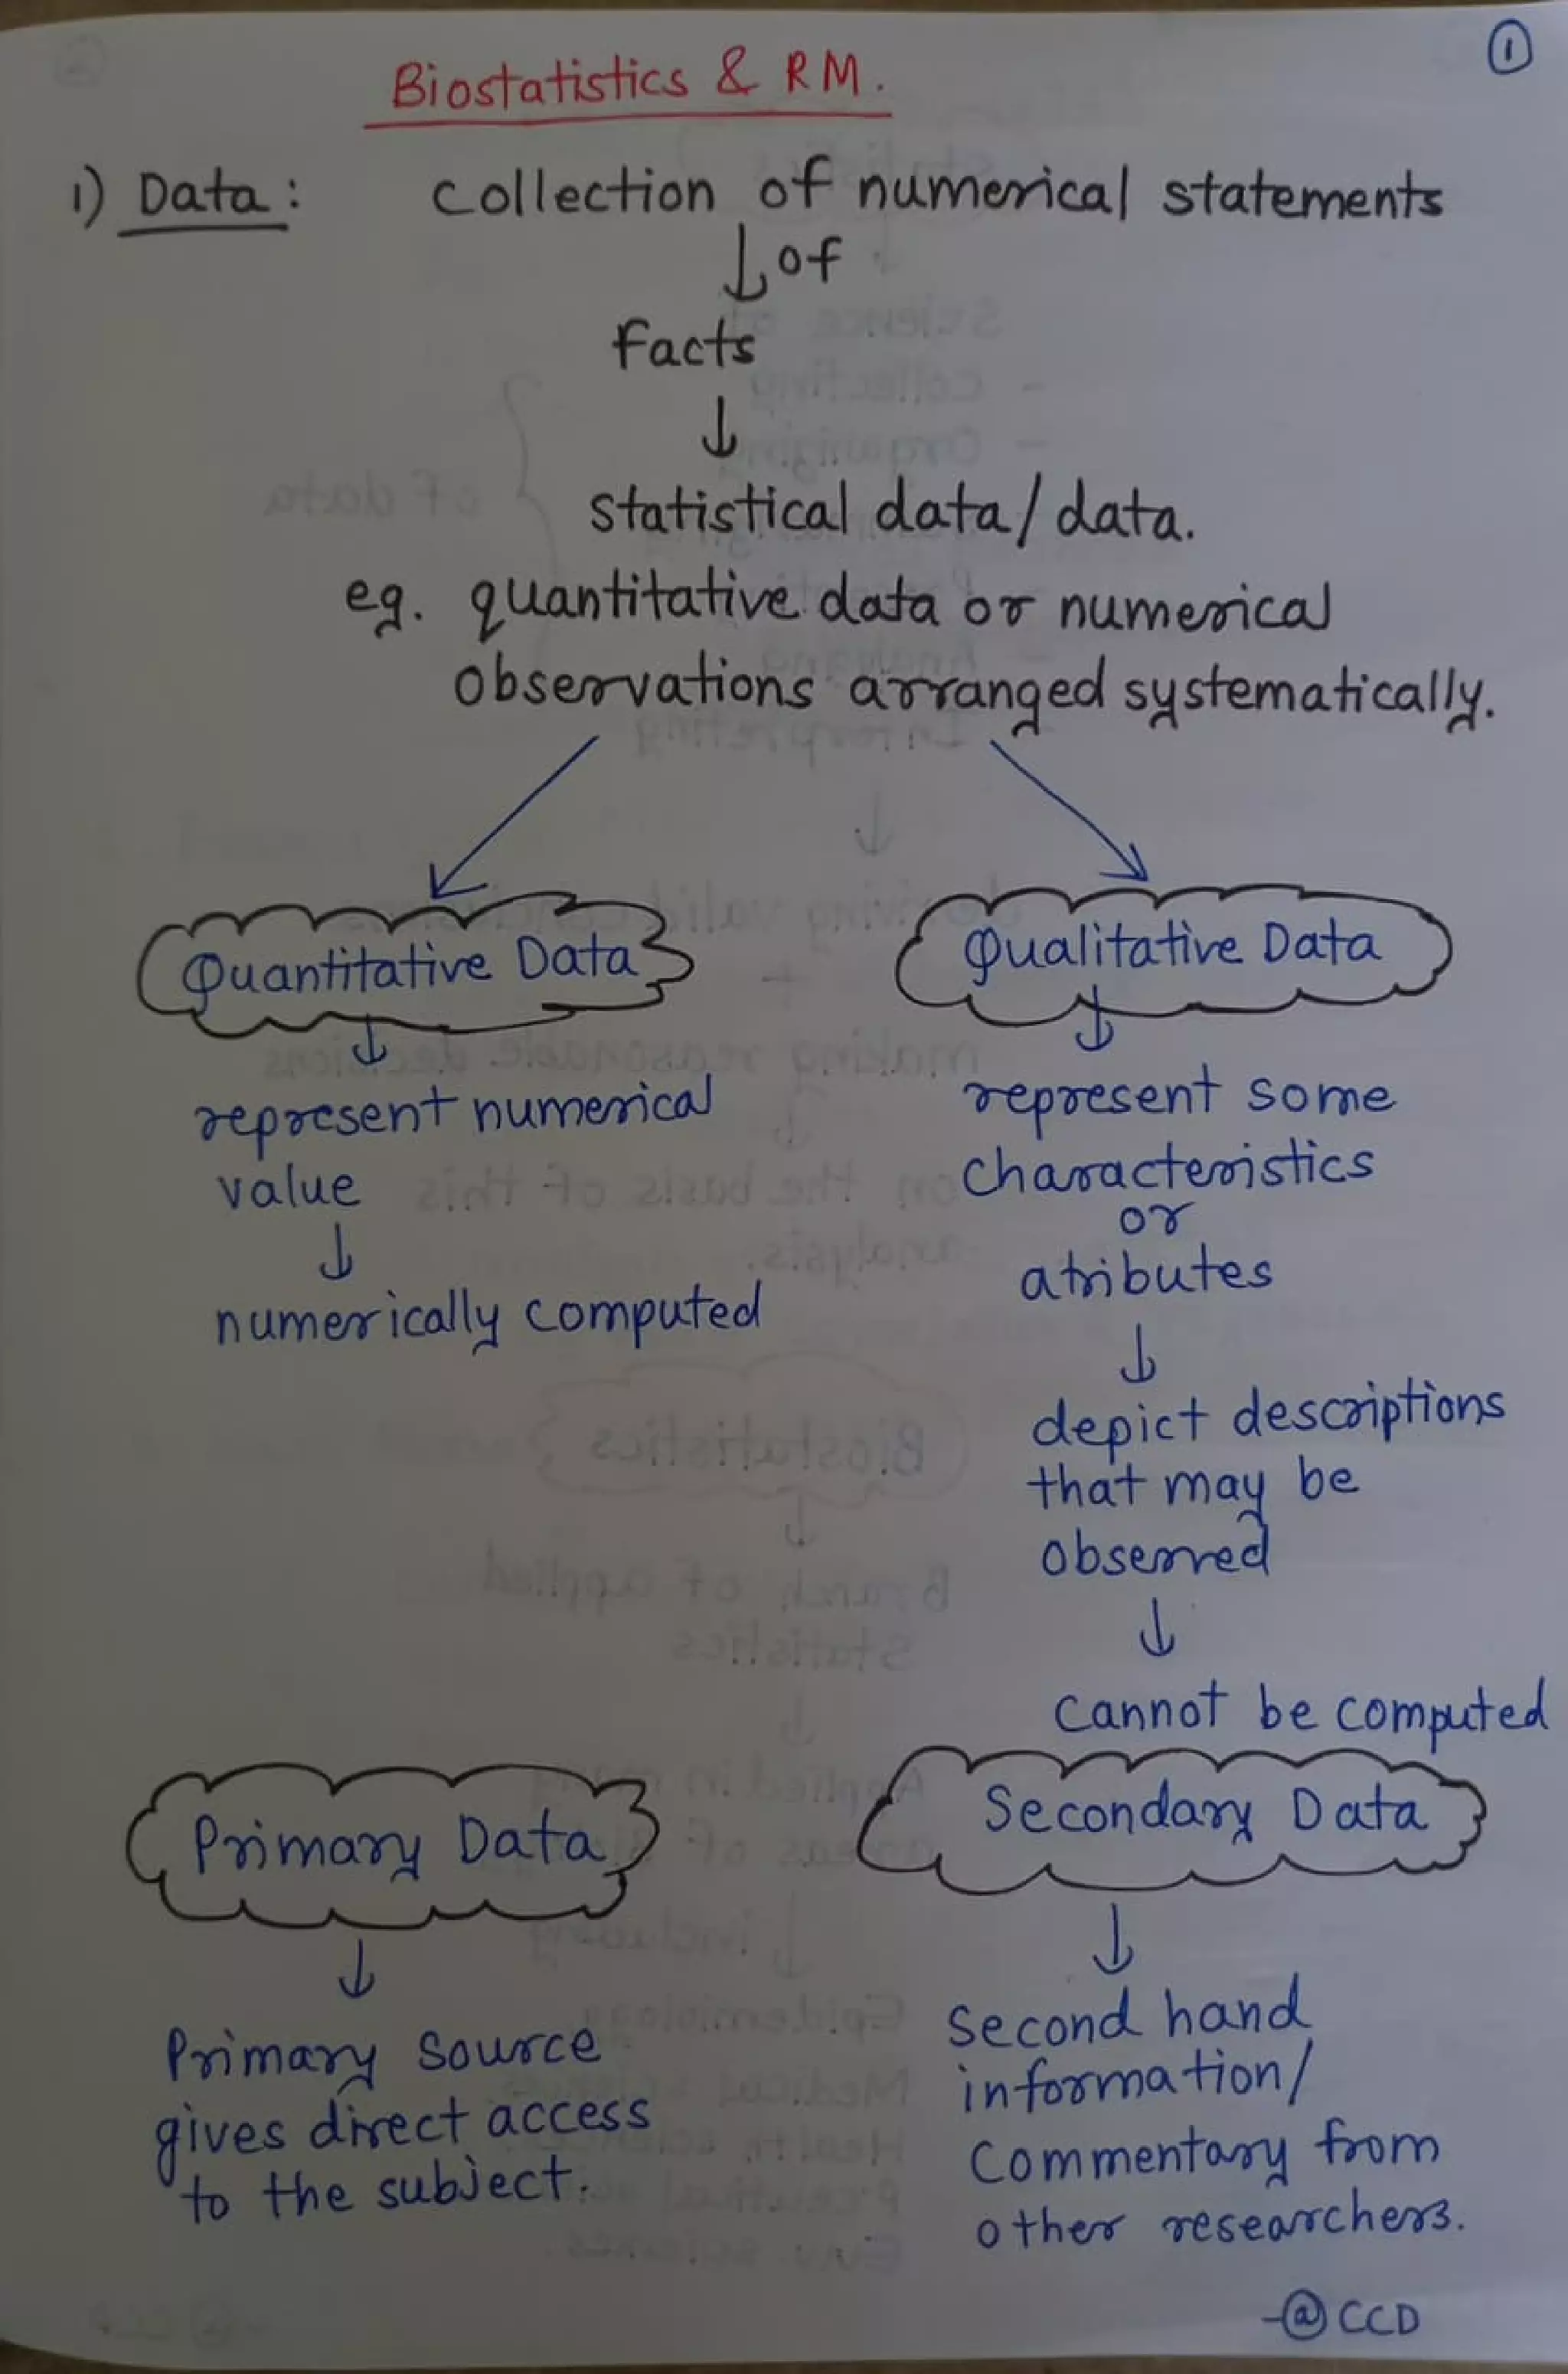 1
Biostatistics & RM.
1) Data: collection of numerical statements
↓ of
Facts
↓
statistical data/data.
eg. quantitative data or numerical
observations arranged systematically.
Quantitative Data
↓
represent numerical
value
↓
numerically computed
Qualitative Data
↓
represent some
characteristics
or
atributes
↓
depict descriptions
that may be
observed
↓
cannot be computed
Primary Data
↓
Primary source
gives direct access
to the subject.
Secondary Data
↓
Second hand
information/
Commentary from
other researchers.
-@CCD